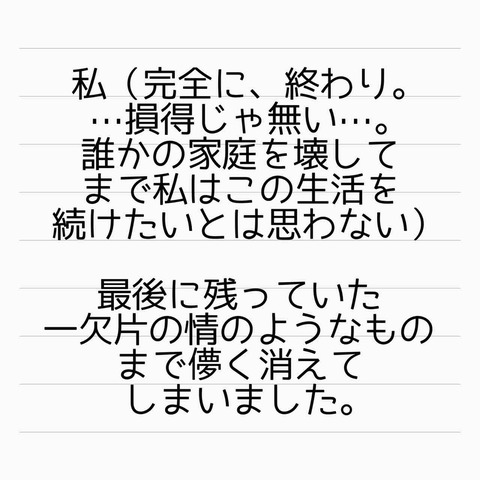 私（完全に、終わり。
…損得じゃ無い…。
誰かの家庭を壊して
まで私はこの生活を
続けたいとは思わない）
最後に残っていた
一欠片の情のようなもの
まで儚く消えて
しまいました。